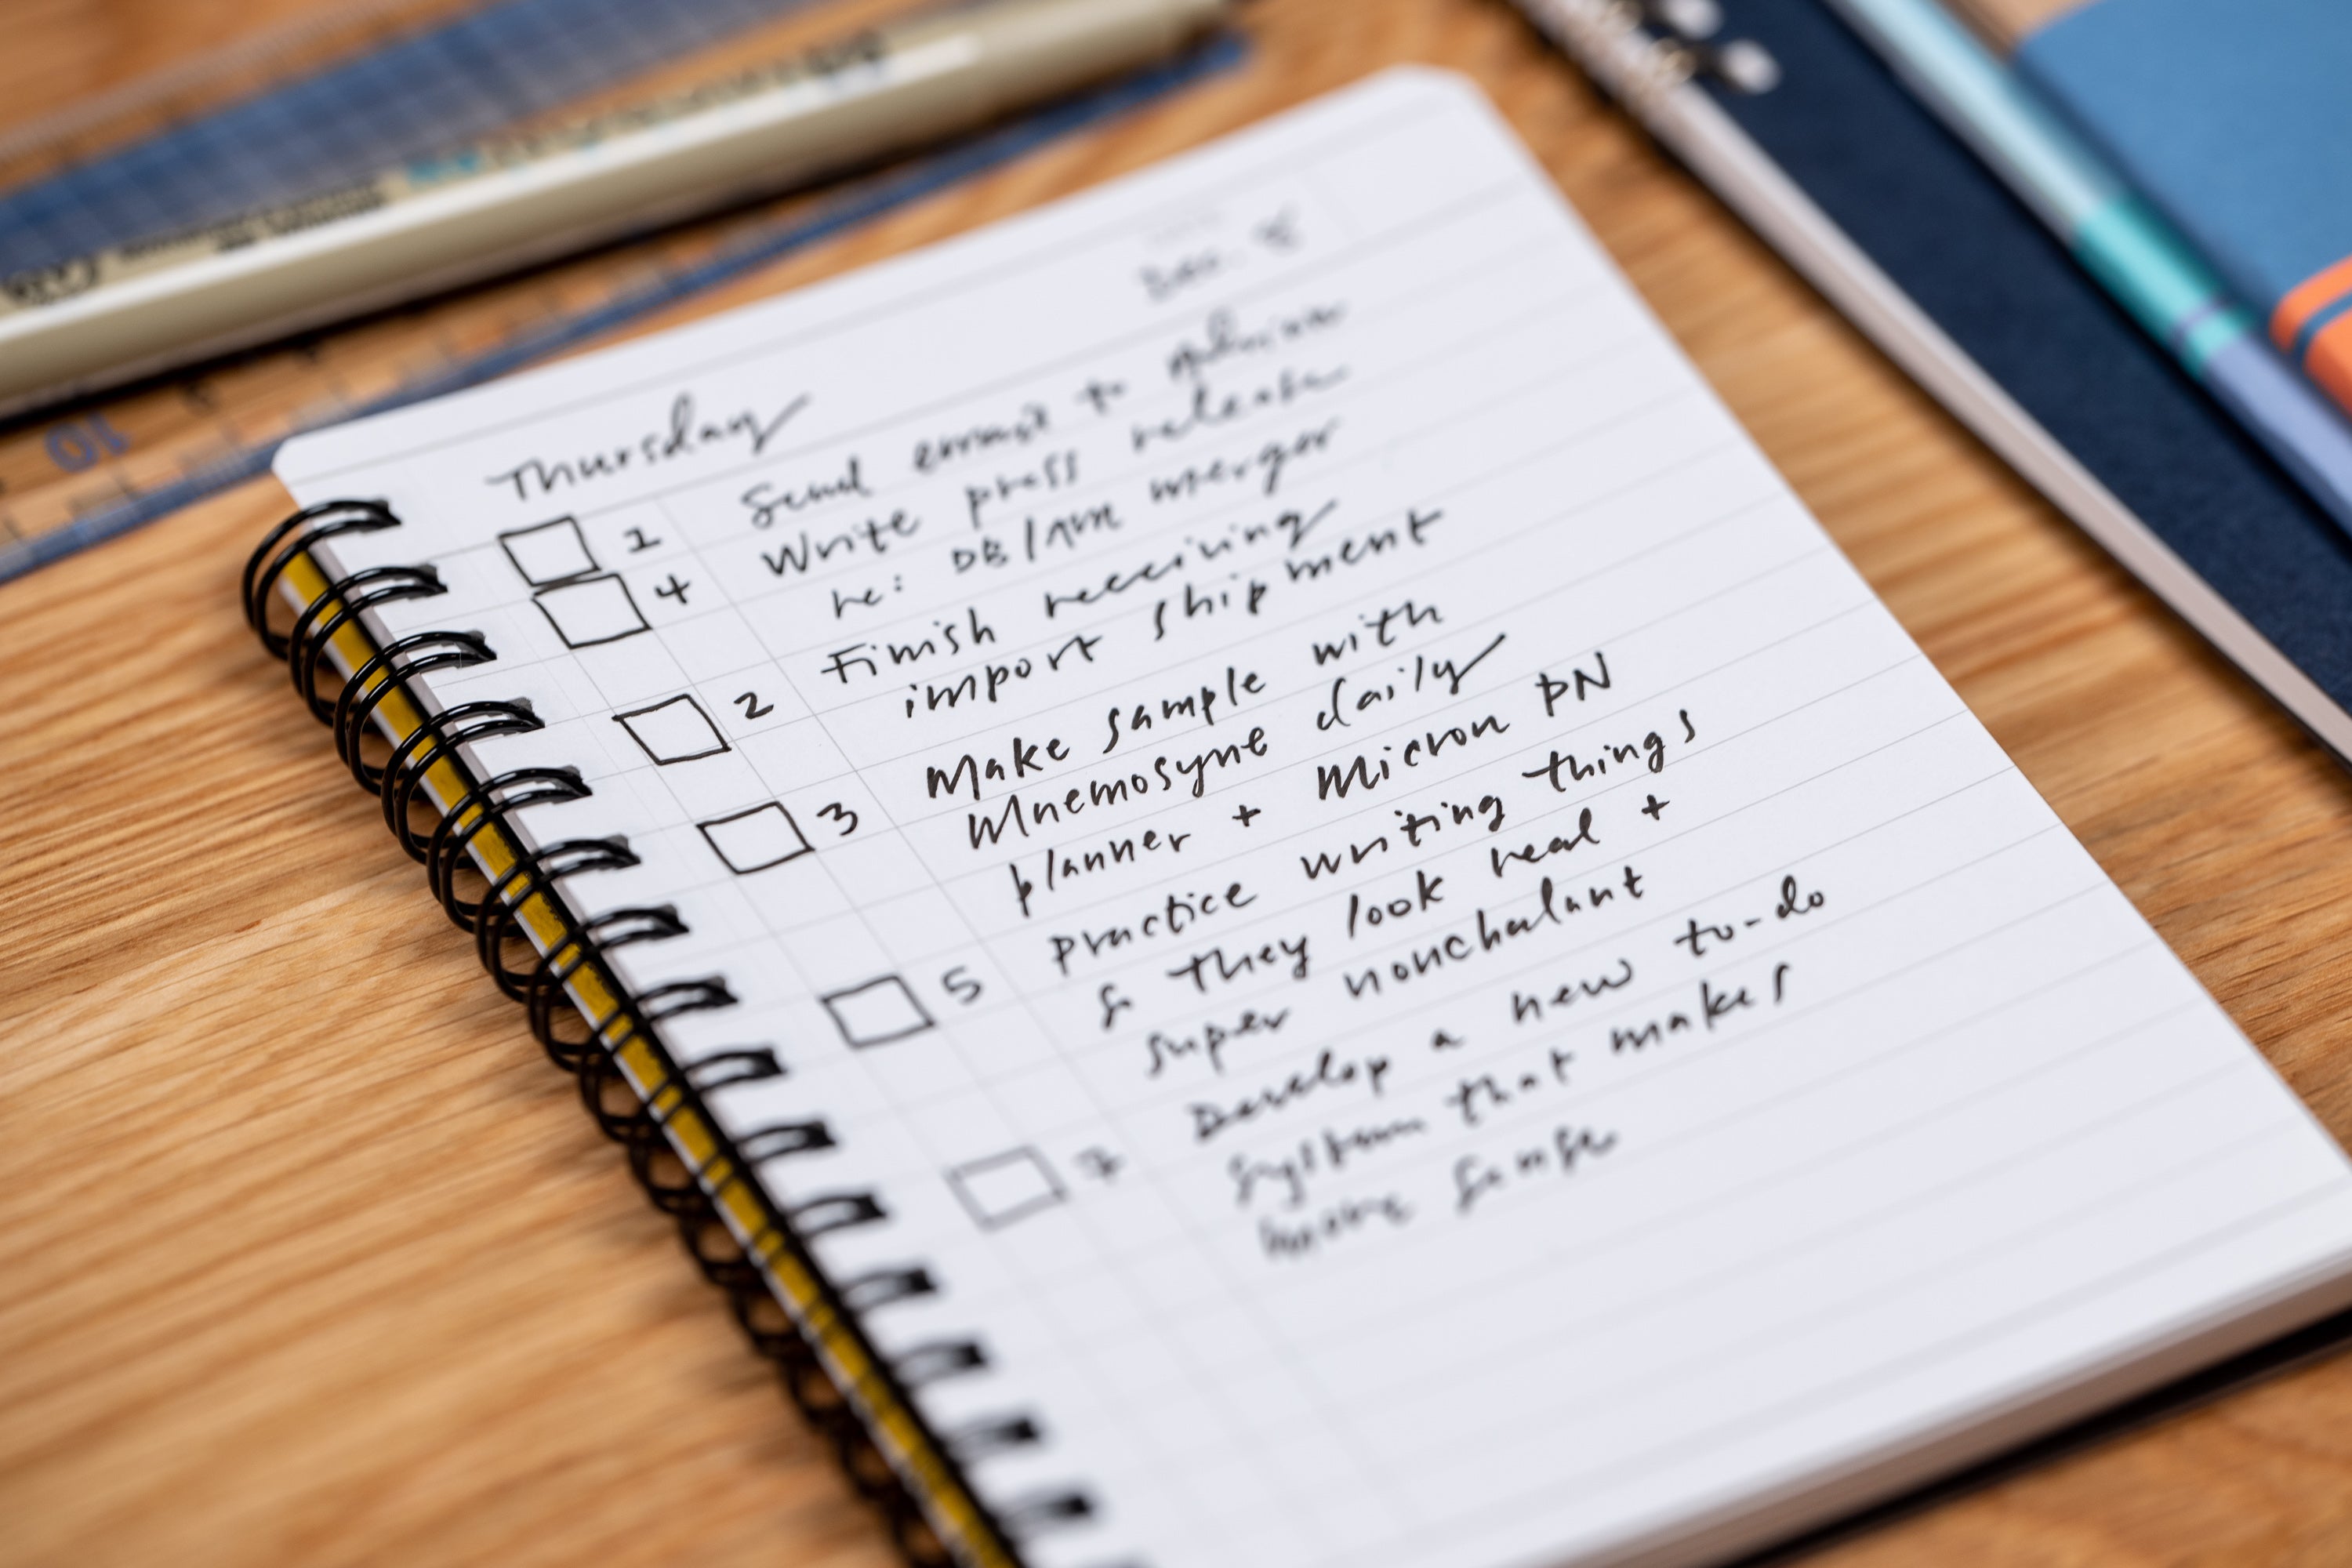 Dec. 8
Thursday
1 Send email to
4 Write press release
re: DB/ merger
2 Finish receiving
import shipment
3 Make sample with
Mnemosyne daily
planner + Micron PN
5 Practice writing things
so they look real +
super nonchalant
7 Develop a new to-do
system that makes
more sense
10